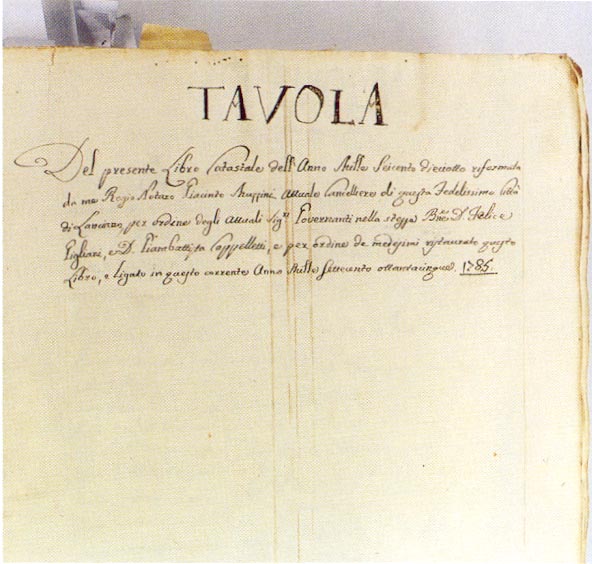 TAVOLA
Del presente Libro Catastale dell'Anno Mille Seicento dieciotto riformata
da me Regio Notaro Giacinto Ruffini Attuale Cancelliero di questa Fedelissima Città
di Lanciano, per ordine degli Attuali Sig.ri Governanti nella stessa D. Felice
e D. Giambattista Cappelletti, e per ordine de medesimi ristaurato questo
Libro, e ligato in questo corrente Anno Mille Settecento ottantacinque. 1785.